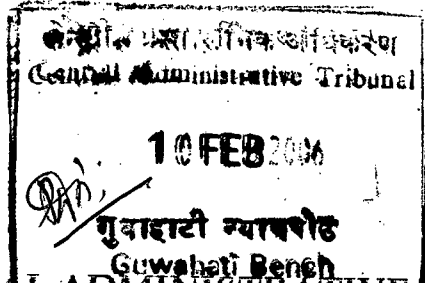 केन्द्रीय प्रशासनिक अधिकरण
Central Administrative Tribunal
10 FEB 2006
गुवाहाटी न्यायपीठ
Guwahati Bench